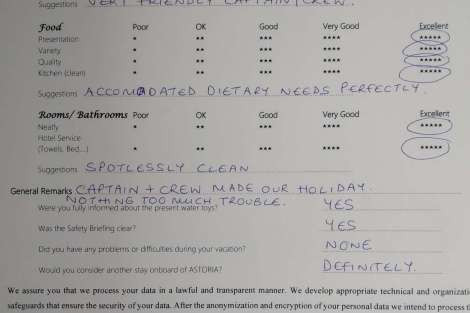 Suggestions VERY FRIENDLY CAPTAIN/CREW.
Food Poor OK Good Very Good Excellent
Presentation * ** *** **** *****
Variety * ** *** **** *****
Quality * ** *** **** *****
Kitchen (clean) * ** *** **** *****
Suggestions ACCOMODATED DIETARY NEEDS PERFECTLY.
Rooms/ Bathrooms Poor OK Good Very Good Excellent
Neatly * ** *** **** *****
Hotel Service
(Towels, Bed,...) * ** *** **** *****
Suggestions SPOTLESSLY CLEAN
General Remarks CAPTAIN + CREW MADE OUR HOLIDAY.
NOTHING TOO MUCH TROUBLE.
Were you fully informed about the present water toys? YES
Was the Safety Briefing clear? YES
Did you have any problems or difficulties during your vacation? NONE
Would you consider another stay onboard of ASTORIA? DEFINITELY.
We assure you that we process your data in a lawful and transparent manner. We develop appropriate technical and organizati
safeguards that ensure the security of your data. After the anonymization and encryption of your personal data we intend to process t